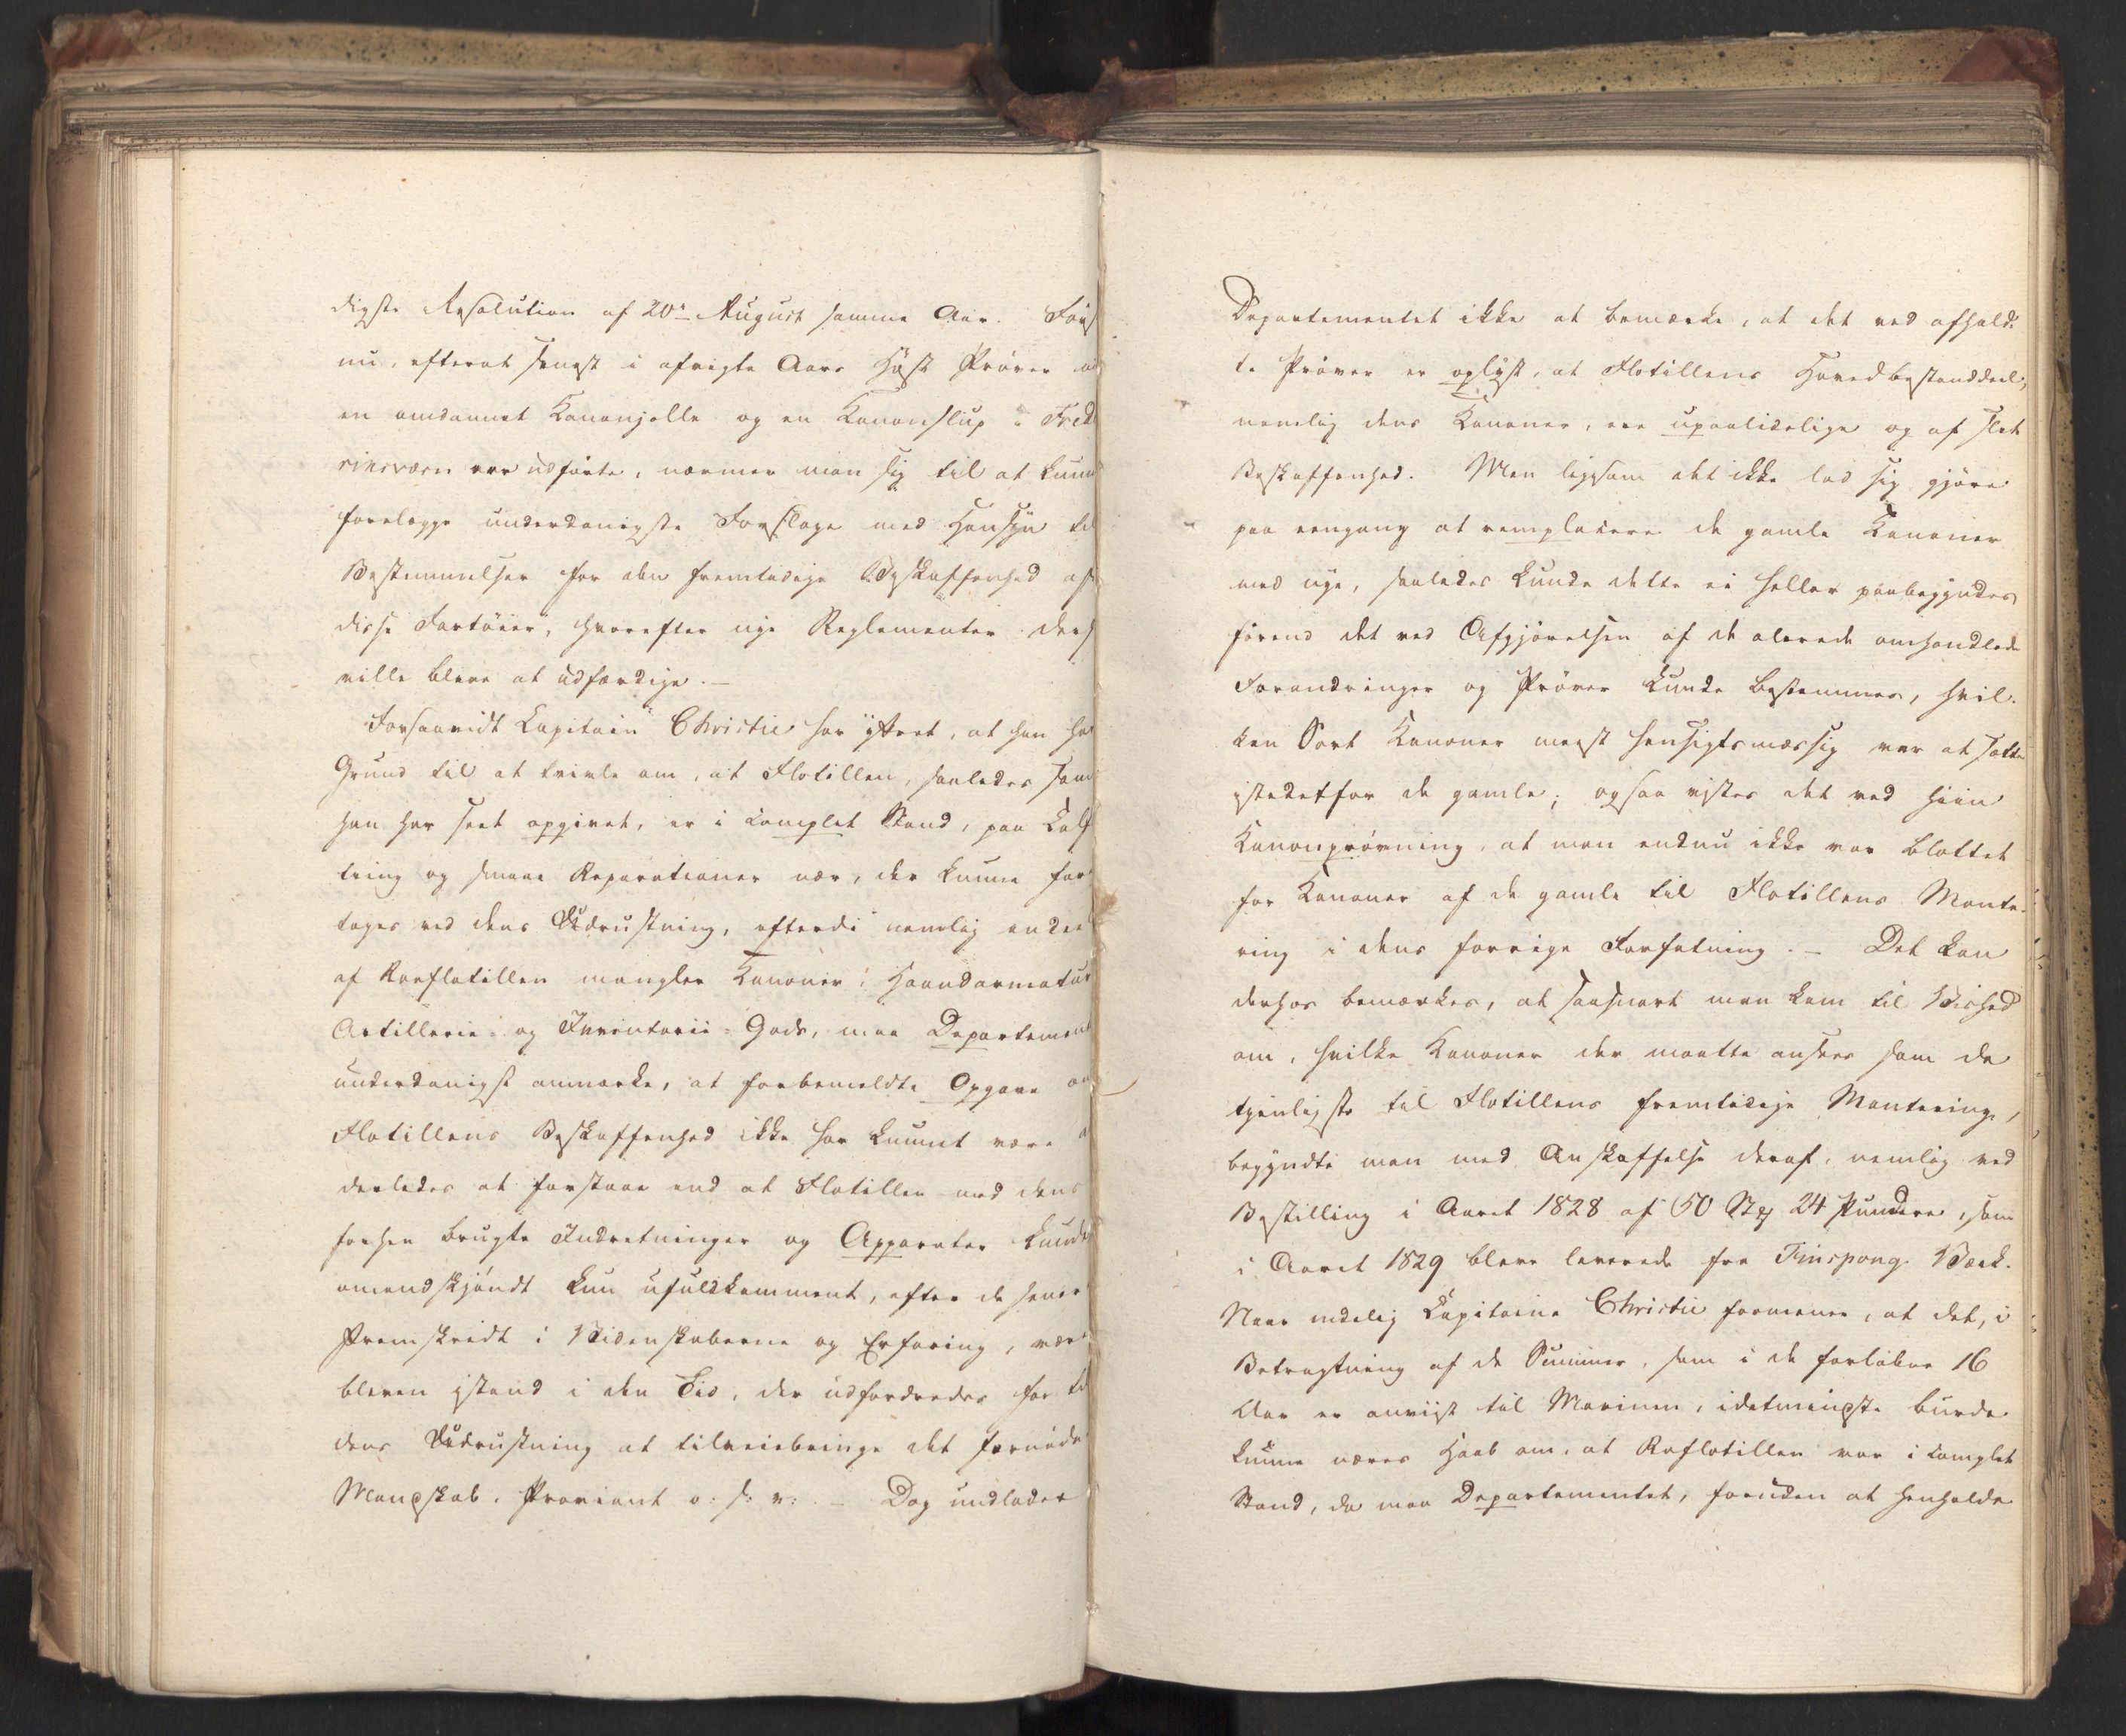 digste Resolution af 20de August samme Aar. Først
nu, efterat senest i afvigte Aars Høst Prøver
en omdannet Kanonjolle og en Kanonslup i Frede
riksværn var udførte, nærmer man sig til at kunne
forelægge underdanigste Forslage med Hensyn til
Bestemmelser for den fremtidige Beskaffenhed af
disse Fartøier, hvorefter nye Reglementer
ville blive at udfærdige. —
Forsaavidt Capitain Christie har yttret, at han har
Grund til at tvivle om, at Flotillen, saaledes som
han har seet opgivet, er i complet Stand, paa Kalf
tring og smaae Reparationer nær, der kunne fore
tages ved dens Udrustning, efterdi nemlig endeel
af Roeflotillen mangler Kanoner, Haandarmatur
Artillerie- og Inventarii-Gods, maa Departement
underdanigst anmærke, at forbemeldte Opgave om
Flotillens Beskaffenhed ikke har kunnet være
derledes at forstaae end at Flotillen med dens
forhen brugte Indretninger og Apparater kunde
omendskjøndt kun ufuldkomment, efter de senere
Fremskridt i Videnskaberne og Erfaring, være
bleven istand i den Tid, der udfordredes for til
dens Udrustning at tilveiebringe det fornødne
Mandskab, Proviant o: s: v: — Dog undlader
Departementet ikke at bemærke, at det ved afhold-
te Prøver er oplyst, at Flotillens Hovedbestanddeel,
nemlig dens Kanoner, ere upaalidelige og af slet
Beskaffenhed. Men ligesom det ikke lod sig gjøre
paa eengang at remplacere de gamle Kanoner
med nye, saaledes kunde dette ei heller paabegyndes
førend det ved Afgjørelsen af de allerede omhandlede
Forandringer og Prøver kunde bestemmes, hvil-
ken Sort Kanoner meest hensigtsmæssig var at sætte
istedetfor de gamle; ogsaa vistes det ved hiin
Kanonprøvning, at man endnu ikke var blottet
for Kanoner af de gamle til Flotillens Monte-
ring i dens forrige Forfatning. — Det kan
derhos bemærkes, at saasnart man kom til Vished
om, hvilke Kanoner der maatte ansees som de
tjenligste til Flotillens fremtidige Montering,
begyndte man med Anskaffelse deraf, nemlig ved
Bestilling i Aaret 1828 af 50 Stk 24 Pundere, som
i Aaret 1829 bleve leverede fra Finspong Værk.
Naar endelig Capitaine Christie formener, at det, i
Betragtning af de Summer, som i de forløbne 16
Aar er anviist til Marinen, idetmindste burde
kunne næres Haab om, at Roflotillen var i complet
Stand, da maa Departementet, foruden at henholde